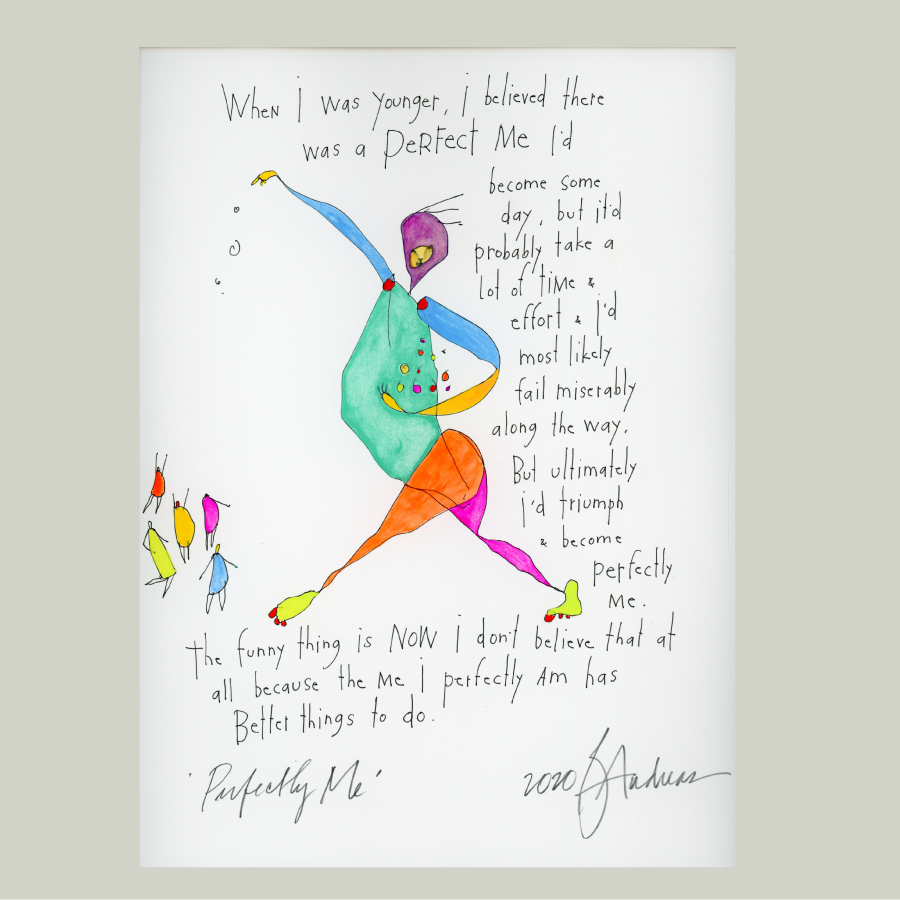 When i was younger, i believed there
was a PeRFect Me I'd
become some
day, but it'd
probably take a
lot of time &
effort & i'd
most likely
fail miserably
along the way.
But ultimately
i'd triumph
& become
perfectly
Me.
The funny thing is NOW i don't believe that at
all because the Me i perfectly Am has
Better things to do.
'Perfectly Me'
2020 B Andreas